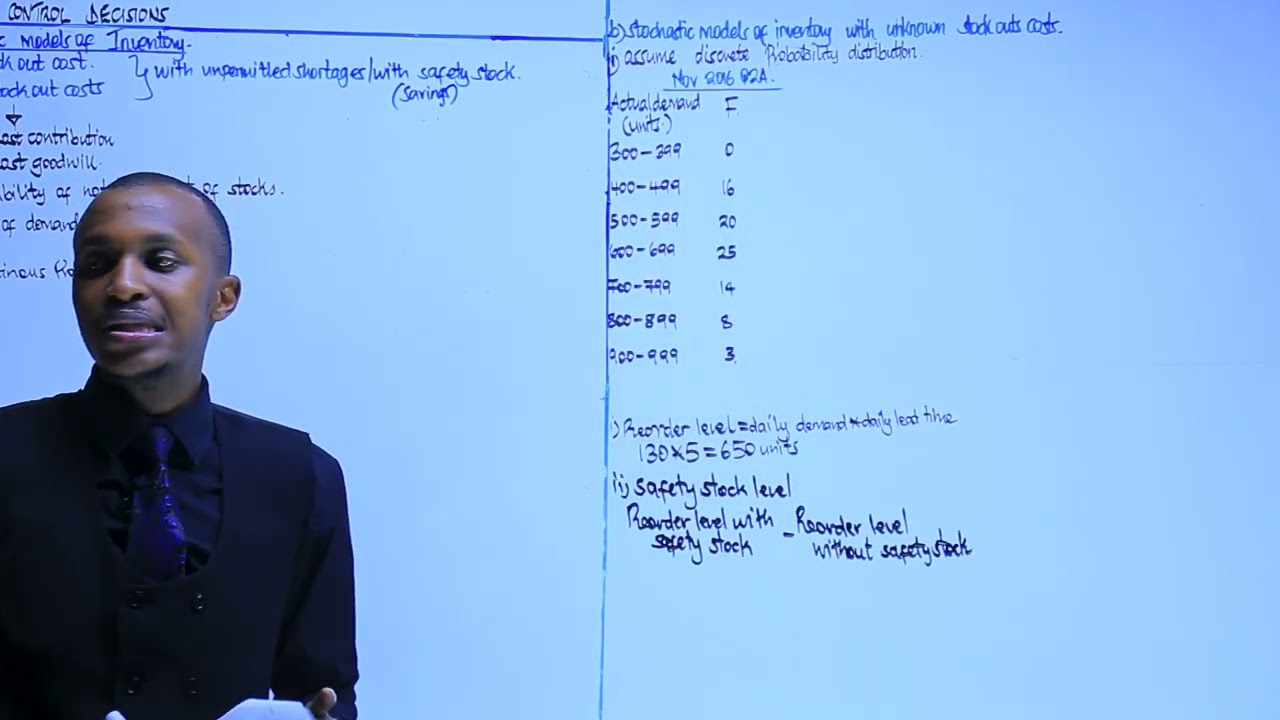 CONTROL DECISIONS
c models of Inventory.
ck out cost.
ock out costs
with unpermitted shortages/with safety stock.
(savings)
Last contribution
Last goodwill.
bility of not of stocks.
of demand
b) stochastic models of inventory with unknown stock outs costs.
i) assume discrete Probability distribution.
Nov 2016 Q2A.
Actual demand F
(units.)
300-399 0
400-499 16
500-599 20
600-699 25
700-799 14
800-899 8
900-999 3
i) Reorder level = daily demand * daily lead time
130 * 5 = 650 units
ii) safety stock level
Reorder level with safety stock - Reorder level without safety stock